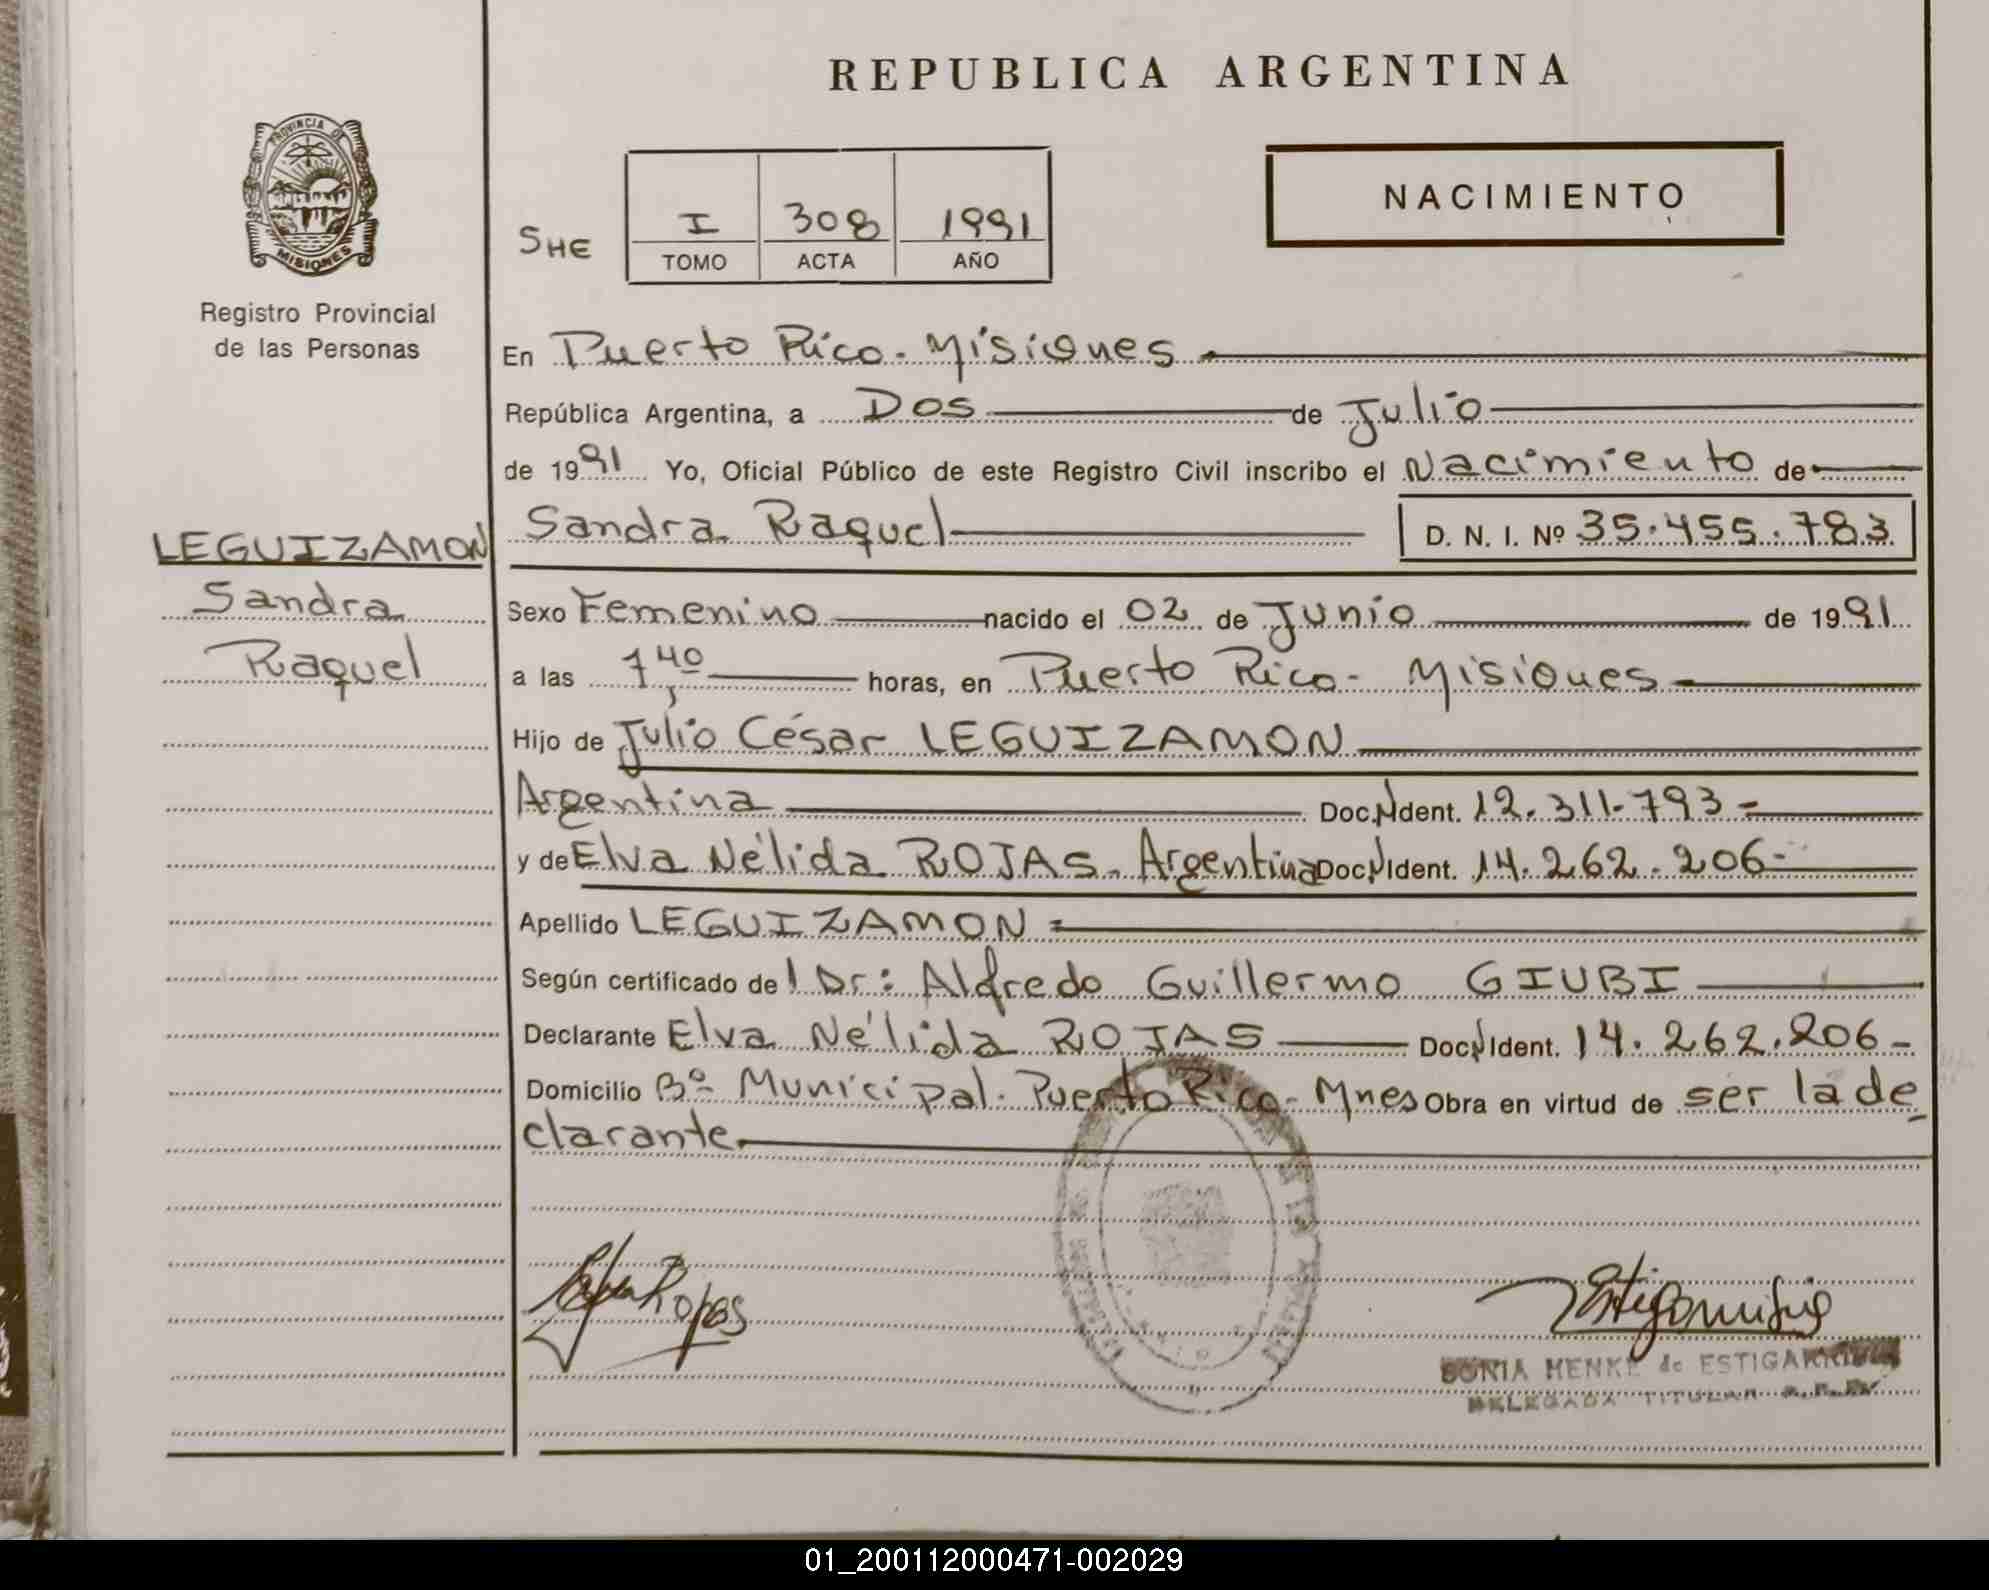 REPUBLICA ARGENTINA
PROVINCIA DE
MISIONES
Registro Provincial
de las Personas
NACIMIENTO
SHE
I 308 1991
TOMO ACTA AÑO
En Puerto Rico - Misiones
República Argentina, a Dos de Julio
de 1991 Yo, Oficial Público de este Registro Civil inscribo el Nacimiento de
LEGUIZAMON
Sandra
Raquel
Sandra Raquel D. N. I. Nº 35.455.783
Sexo Femenino nacido el 02 de Junio de 1991
a las 7,40 horas, en Puerto Rico - Misiones
Hijo de Julio César LEGUIZAMON
Argentina Doc.N Ident. 12.311.793 =
y de Elva Nélida ROJAS - Argentina Doc.N Ident. 14.262.206 -
Apellido LEGUIZAMON =
Según certificado del Dr: Alfredo Guillermo GIUBI
Declarante Elva Nélida ROJAS Doc.N Ident. 14.262.206 -
Domicilio Bº Municipal - Puerto Rico - Mnes Obra en virtud de ser la de
clarante
SONIA HENKE de ESTIGARRIBIA
DELEGADA TITULAR
01_200112000471-002029